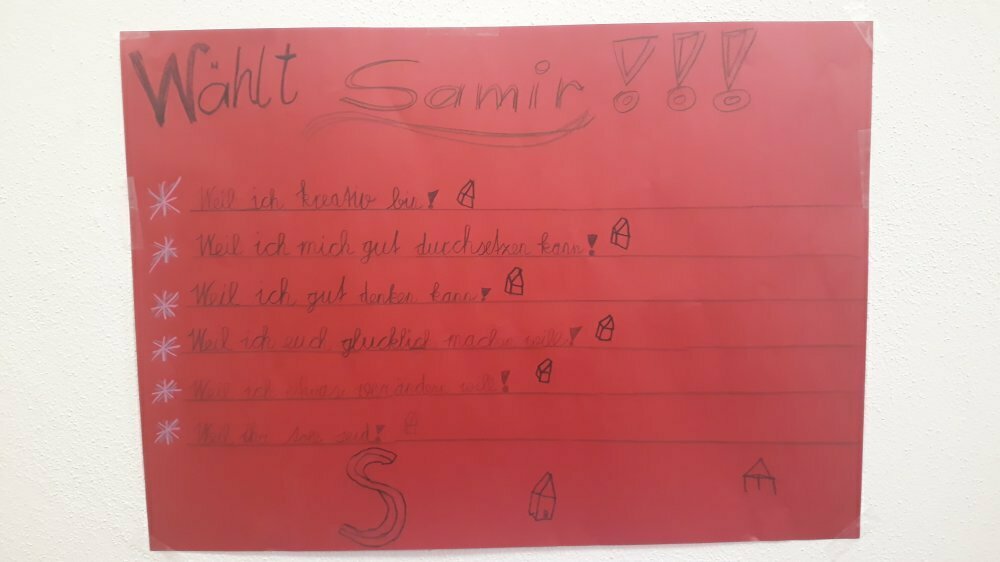 Wählt Samir!!!
Weil ich kreativ bin!
Weil ich mich gut durchsetzen kann!
Weil ich gut denken kann!
Weil ich euch glucklich machen will!
Weil ich etwas verändern will!
Weil ihr seid!
S